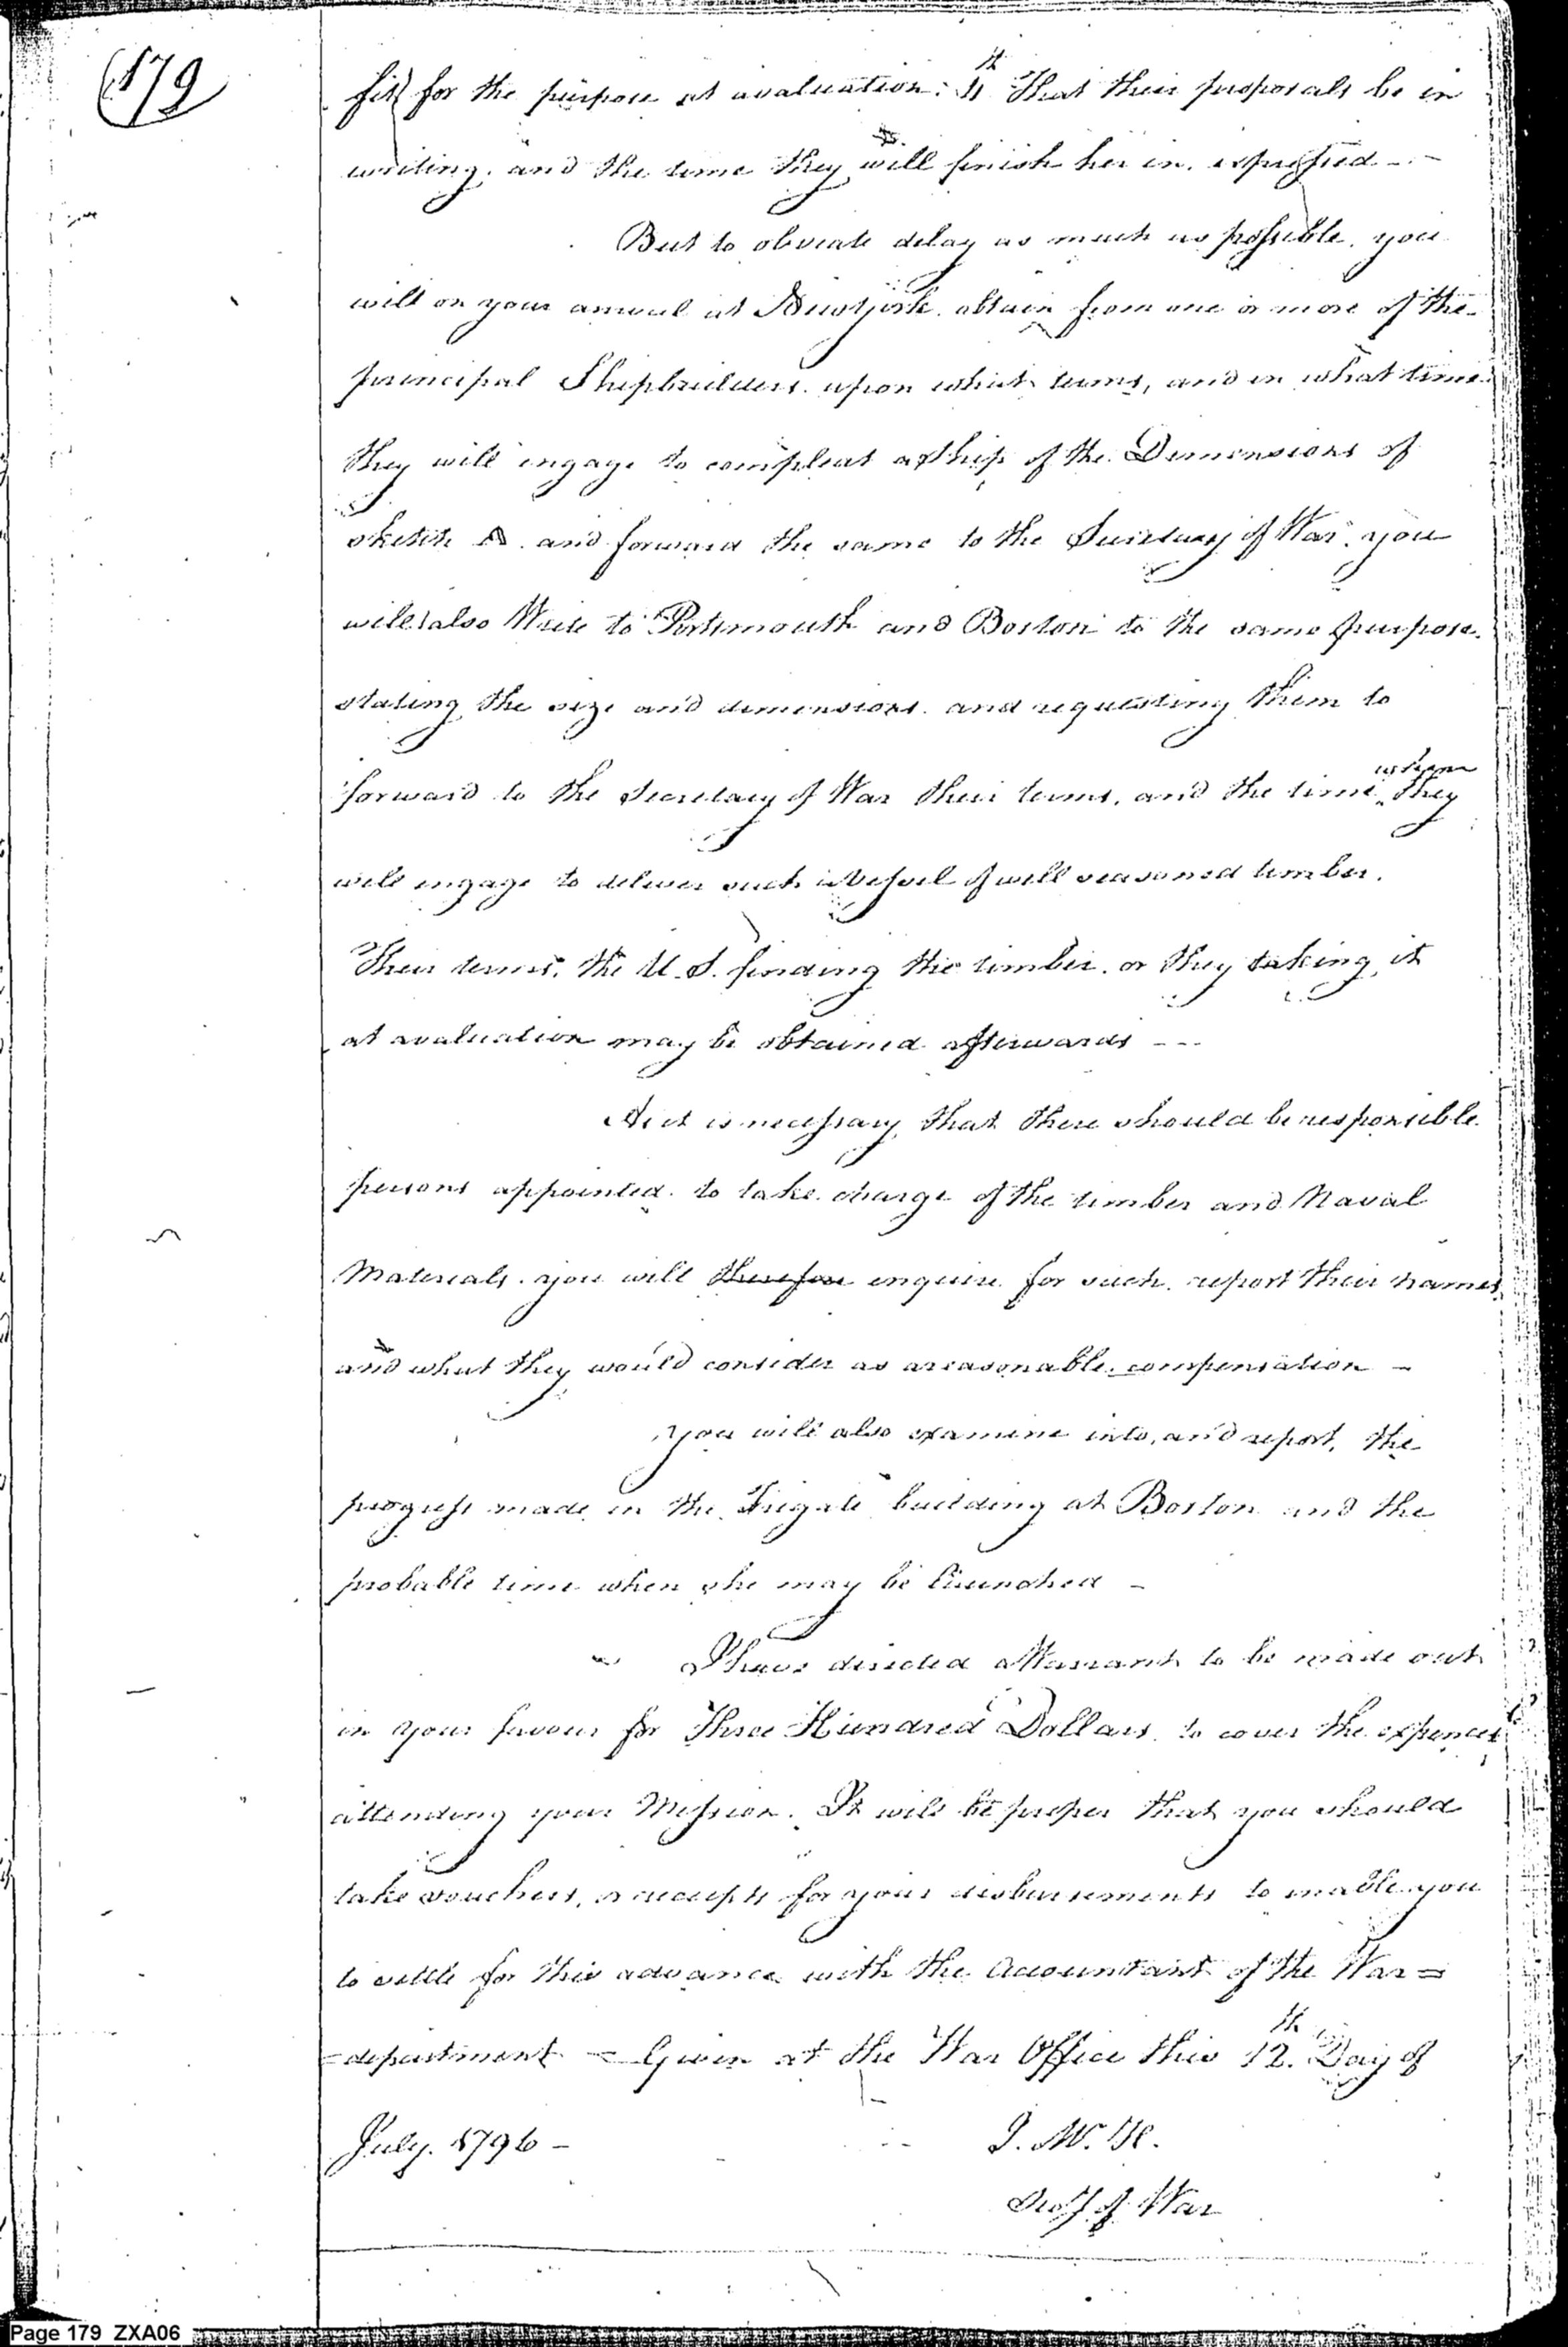 179
fit for the purpose at avaluation: 4th That their proposals be in
writing, and the time they will finish her in, expressed - . -
But to obviate delay as much as possible, you
will on your arrival at Newyork, obtain from one or more of the
principal Shipbuilders, upon what terms, and in what time
they will engage to compleat a Ship of the Dimensions of
sketch A. and forward the same to the Secretary of War. you
will also Write to Portsmouth and Boston to the same purpose,
stating the size and dimensions, and requesting them to
forward to the Secretary of War their terms, and the time, when they
will engage to deliver such a Vessel of well seasoned timber.
Their terms, the U.S. finding the timber, or they taking it
at avaluation may be obtained afterwards - - -
As it is necessary, that there should be responsible
persons appointed to take charge of the timber and Naval
Materials, you will therefore enquire for such, report their names
and what they would consider as areasonable compensation -
you will also examine into, and report, the
progress made in the Frigate building at Boston and the
probable time when she may be launched -
I have directed a Warrant to be made out
in your favour for Three Hundred Dollars, to cover the expences
attending your Mission. It will be proper that you should
take vouchers, or receipts for your disbursements to enable you
to settle for this advance with the Accountant of the War =
= department - Given at the War Office this 12th Day of
July. 1796 -
J. McH.
Secy of War
Page 179 ZXA06